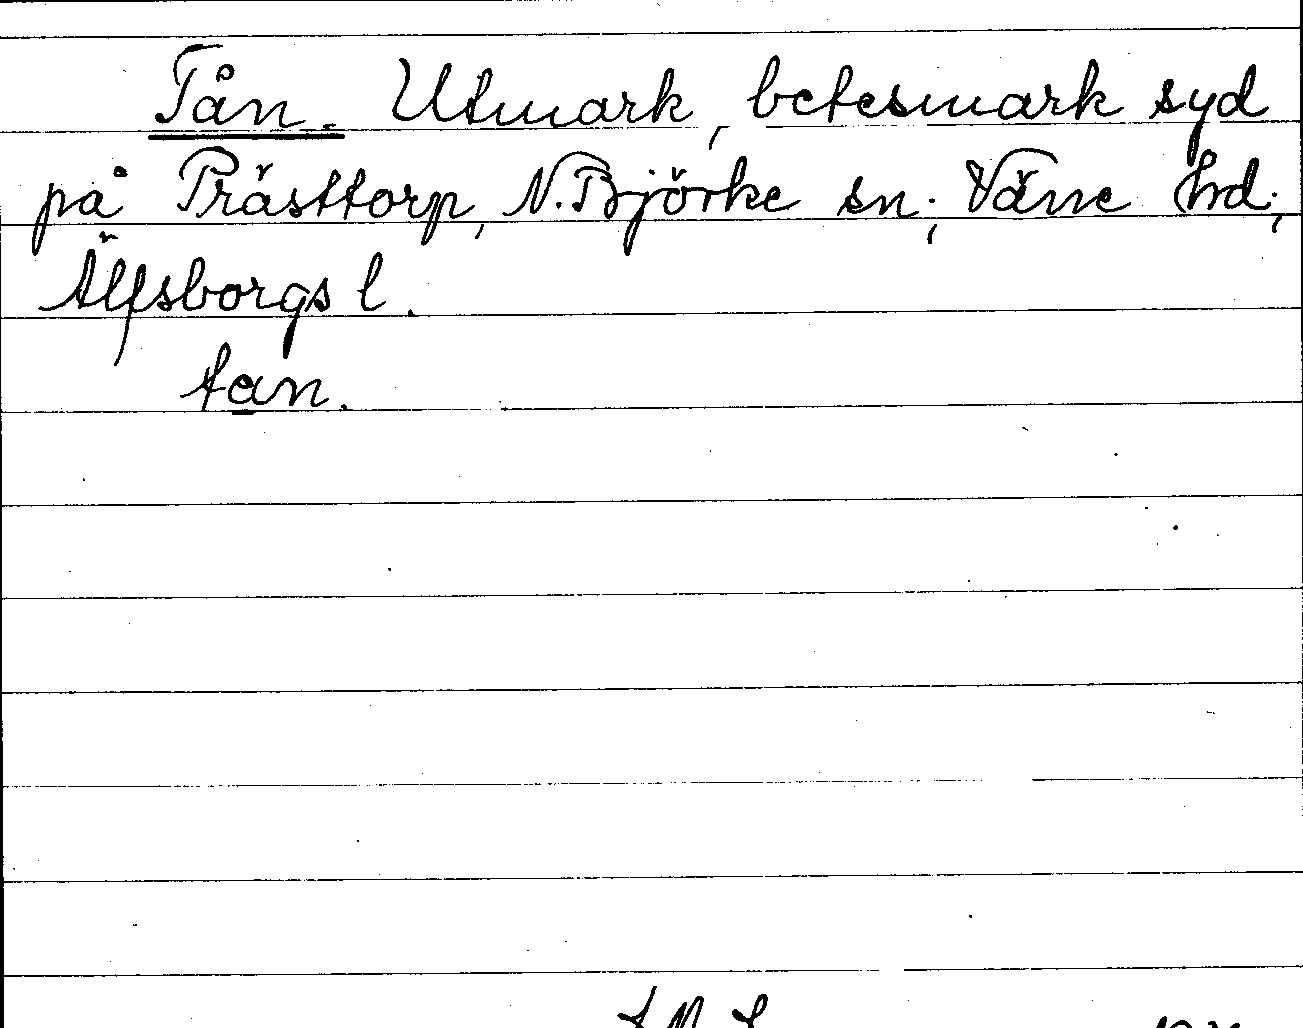 Tån. Utmark, betesmark syd
på Prästtorp, N. Björke sn; Väne hd;
Älfsborgs l.
tan.